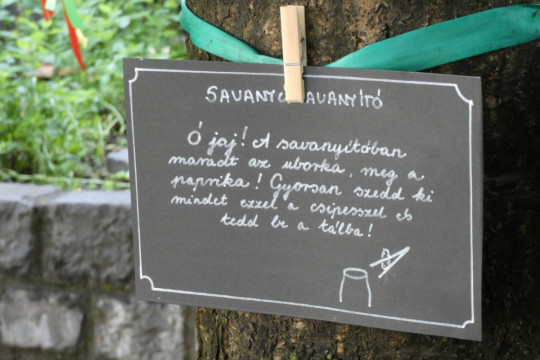 SAVANYÍTÓ
Ó jaj! A savanyítóban
maradt az uborka, meg a
paprika! Gyorsan szedd ki
mindet ezzel a csipesszel és
tedd be a tálba!